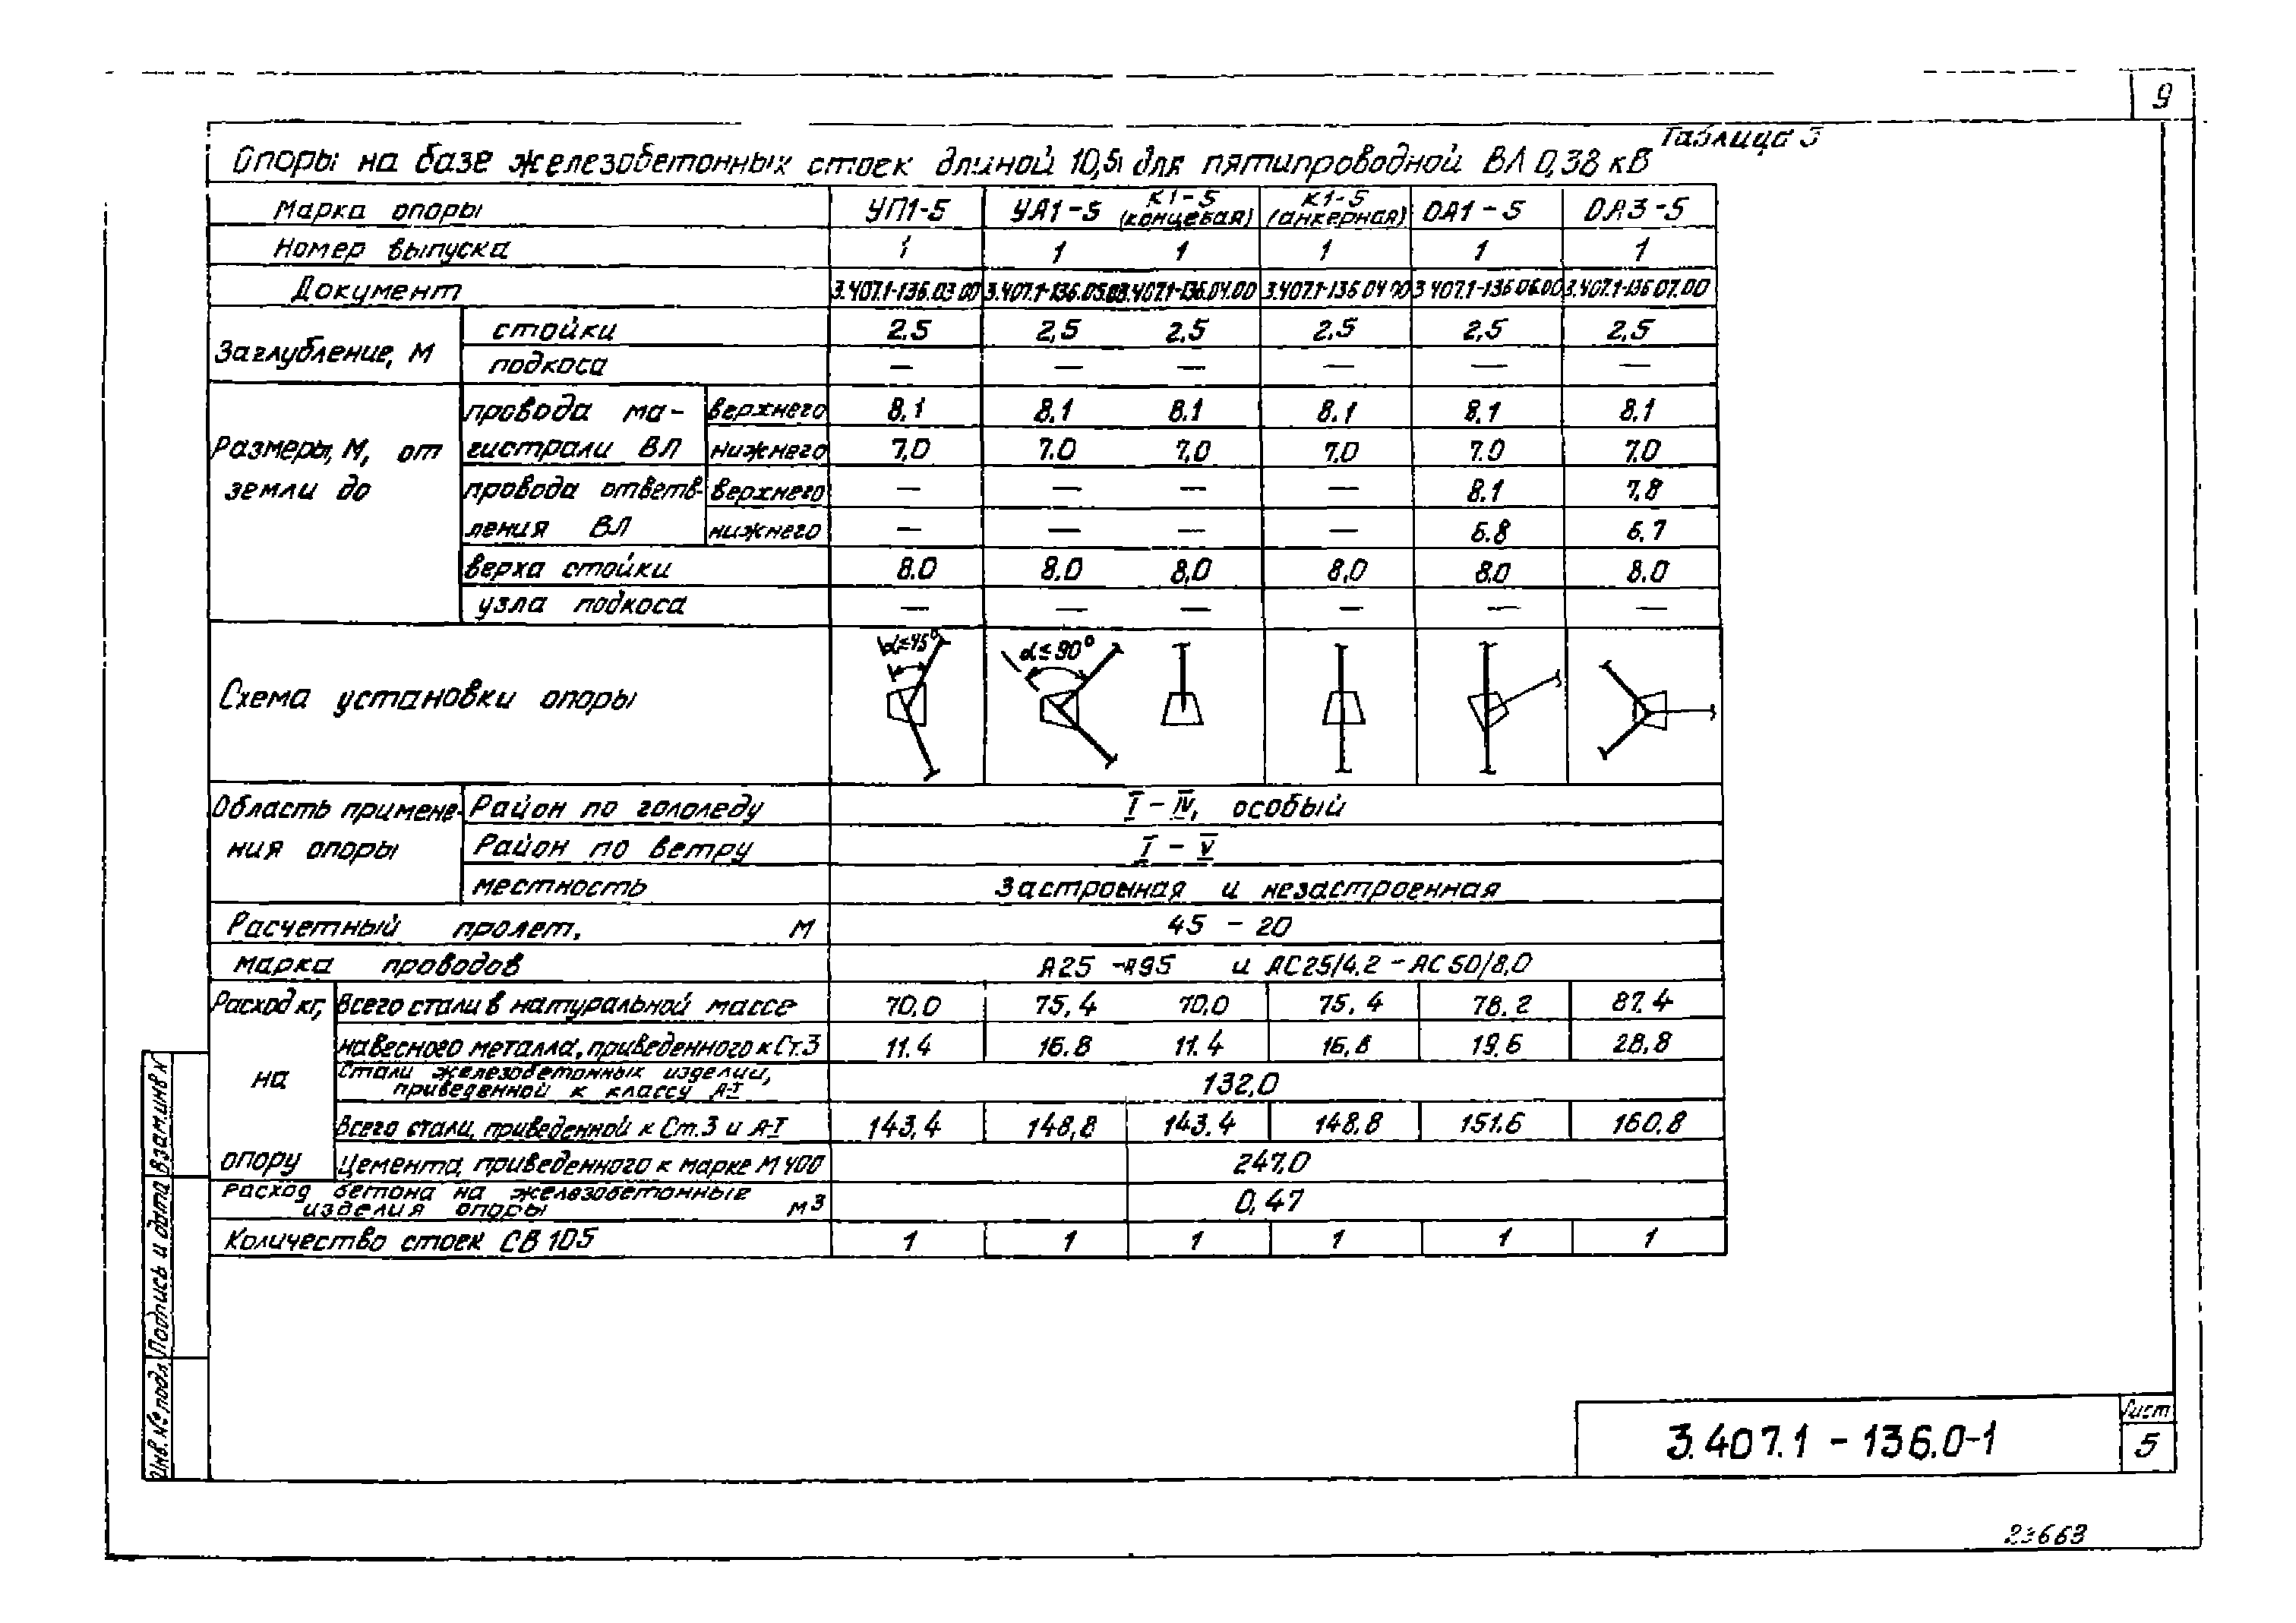 9
Таблица 3
Опоры на базе железобетонных стоек длиной 10,5 для пятипроводной ВЛ 0,38 кВ
Марка опоры УП1-5 УА1-5 К1-5 (концевая) К1-5 (анкерная) ОА1-5 ОА3-5
Номер выпуска 1 1 1 1 1 1
Документ 3.407.1-136.03.00 3.407.1-136.05.00 3.407.1-136.04.00 3.407.1-136 04 00 3 407.1-136 06.00 3.407.1-136 07.00
Заглубление, м
стойки 2.5 2,5 2.5 2.5 2,5 2,5
подкоса — — — — — —
Размеры, м, от земли до
провода магистрали ВЛ
верхнего 8.1 8.1 8.1 8.1 8.1 8.1
нижнего 7,0 7.0 7,0 7,0 7.0 7.0
провода ответвления ВЛ
верхнего — — — — 8.1 7,8
нижнего — — — — 6.8 6,7
верха стойки 8.0 8,0 8,0 8,0 8.0 8.0
узла подкоса — — — — — —
Схема установки опоры
α≤45°
α≤90°
Область применения опоры
Район по гололеду I - IV, особый
Район по ветру I - V
местность Застроенная и незастроенная
Расчетный пролет, м 45 - 20
марка проводов А25 -А95 и АС25/4,2 - АС50/8,0
Расход кг, на опору
Всего стали в натуральной массе 70,0 75,4 70,0 75,4 78.2 87.4
навесного металла, приведенного к Ст.3 11.4 16.8 11.4 16,8 19.6 28,8
Стали железобетонных изделий, приведенной к классу А-I 132,0
Всего стали, приведенной к Ст.3 и А-I 143,4 148,8 143.4 148.8 151.6 160.8
Цемента, приведенного к марке М400 247.0
Расход бетона на железобетонные изделия опоры м3 0,47
Количество стоек СВ 105 1 1 1 1 1 1
Взам.инв N
Подпись и дата
Инв. № подл.
3.407.1 - 136.0-1
Лист
5
23663